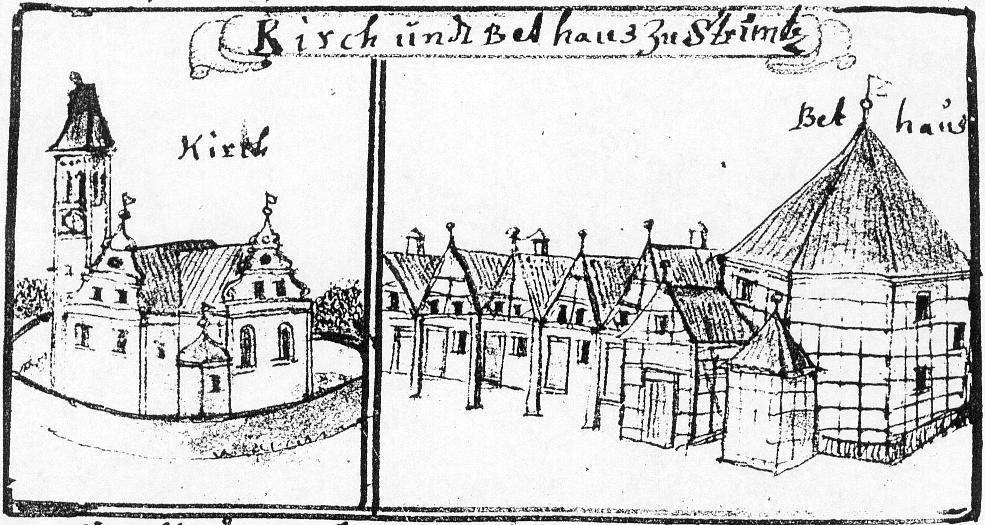 Kirch und Bethaus zu Strimtz
Kirch
Bet haus